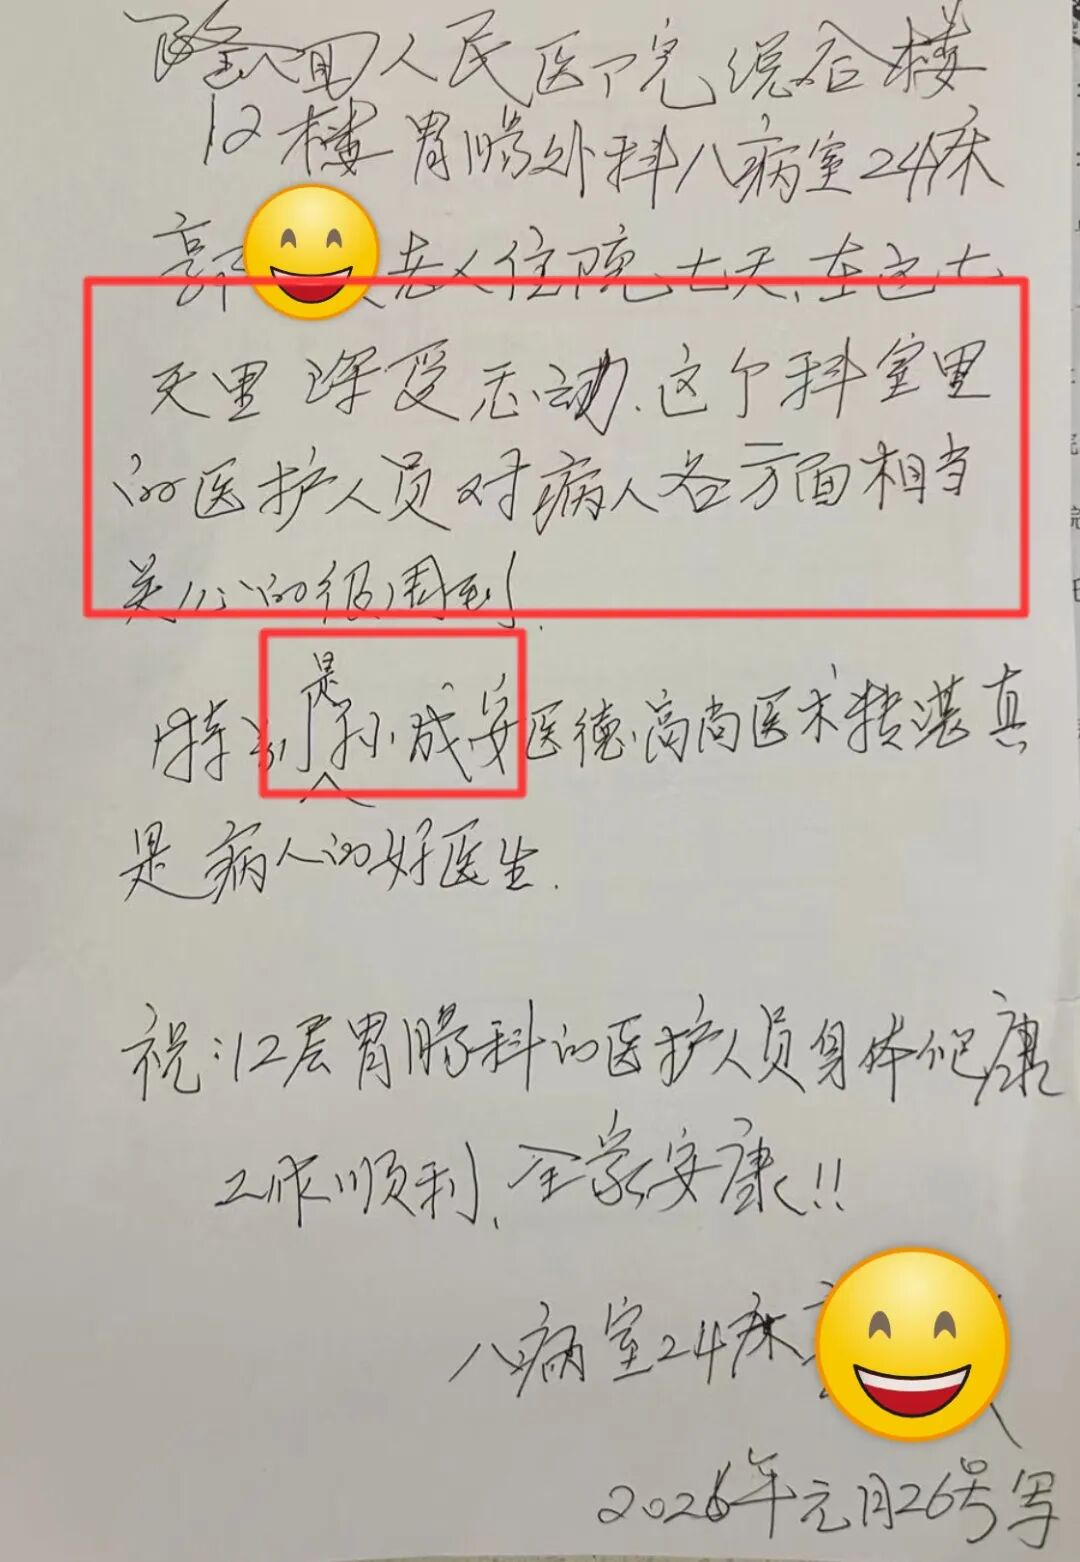 人民医院综合楼
12楼胃肠外科八病室24床
老人住院七天、在这七
天里深受感动.这个科室里
的医护人员对病人各方面相当
关心的很周到.
特别是孙成安医德高尚医术精湛真
是病人的好医生.
祝:12层胃肠科的医护人员身体健康
工作顺利、全家安康!!
八病室24床
2026年元月26号写